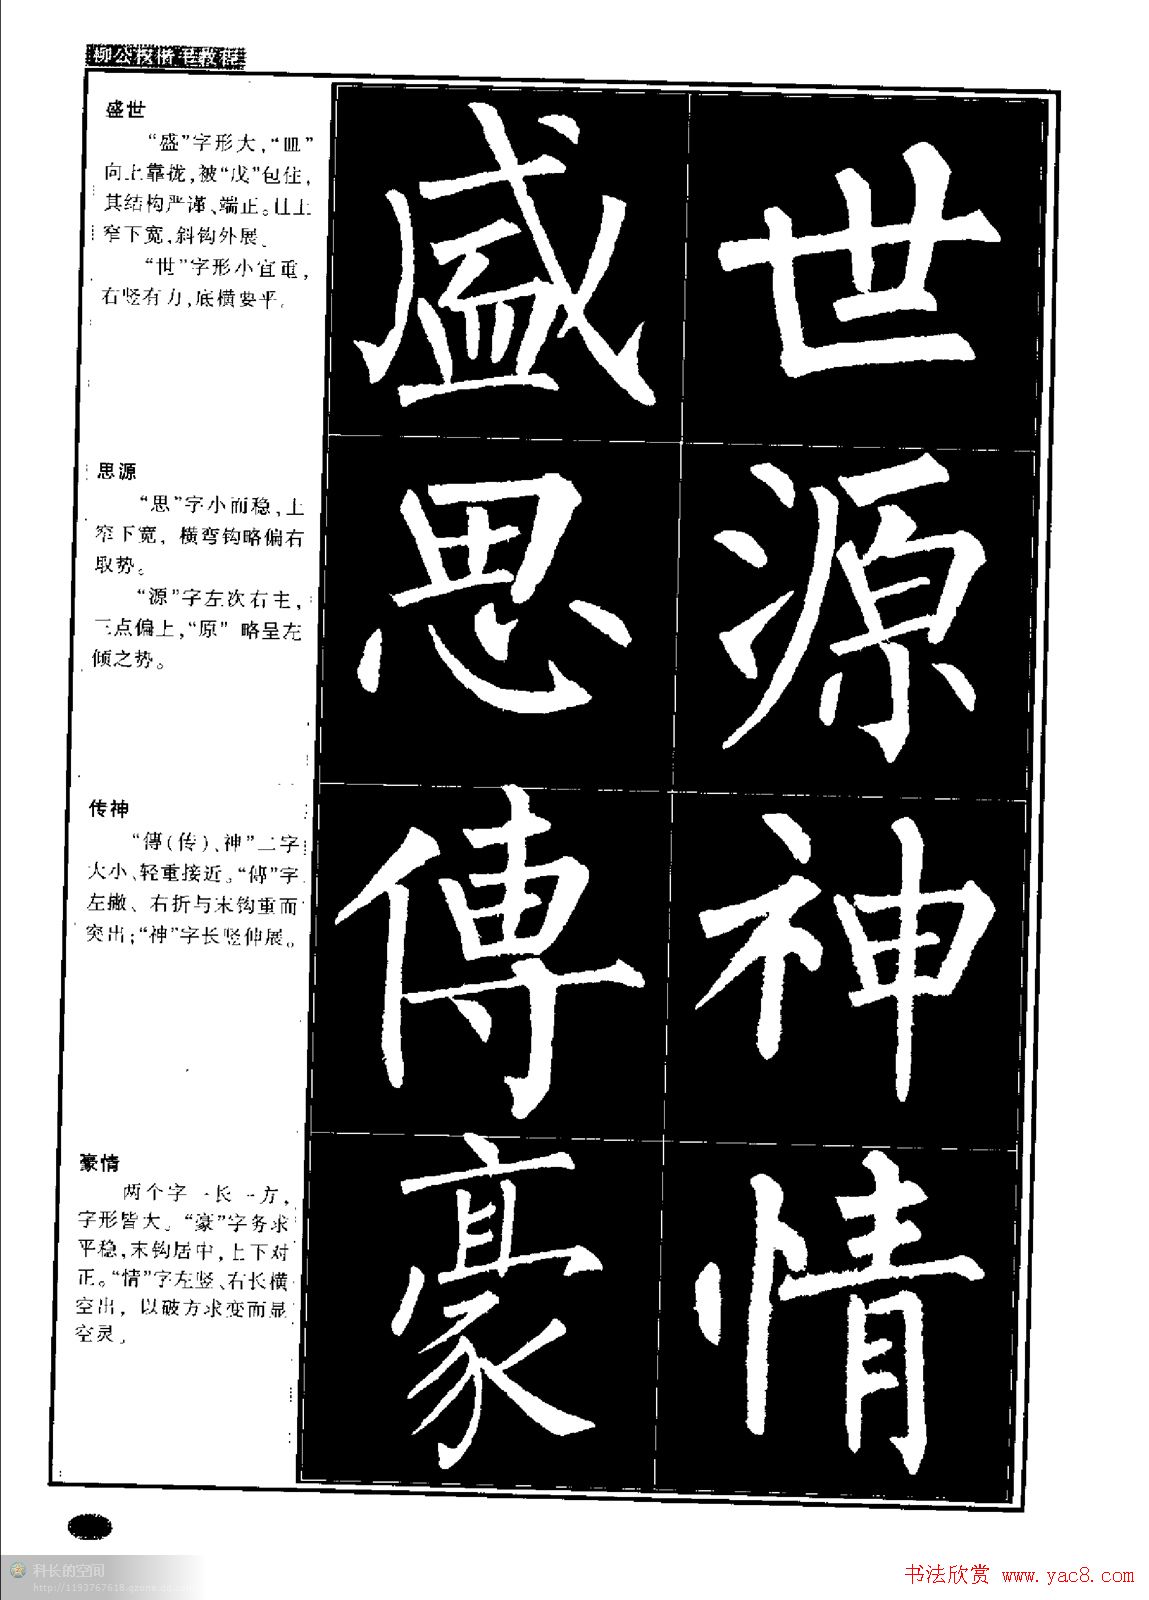 柳公权楷书教程
盛世
“盛”字形大，“皿”
向上靠拢，被“戊”包住，
其结构严谨、端正。且上
窄下宽，斜钩外展。
“世”字形小宜重，
右竖有力，底横要平。
盛世
思源
“思”字小而稳，上
窄下宽，横弯钩略偏右
取势。
“源”字左次右主，
三点偏上，“原”略呈左
倾之势。
思源
传神
“傳(传)、神”二字
大小、轻重接近。“傳”字
左撇、右折与末钩重而
突出；“神”字长竖伸展。
傳神
豪情
两个字一长一方，
字形皆大。“豪”字务求
平稳，末钩居中，上下对
正。“情”字左竖、右长横
突出，以破方求变而显
空灵。
豪情
科长的空间
http://1193767618.qzone.qq.com
书法欣赏 www.yac8.com